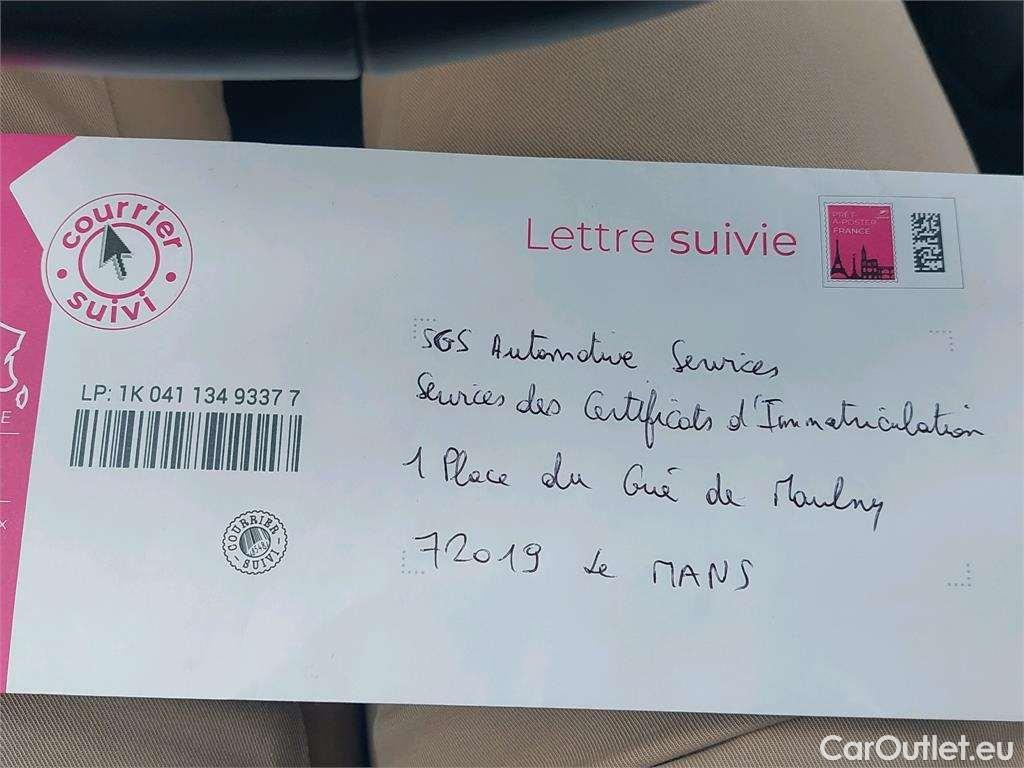 courrier
suivi
Lettre suivie
PRÊT
À-POSTER
FRANCE
LP: 1K 041 134 9337 7
SGS Automotive Services
Services des Certificats d'Immatriculation
1 Place du Gué de Maulny
72019 Le MANS
COURRIER
SUIVI
E
X
CarOutlet.eu